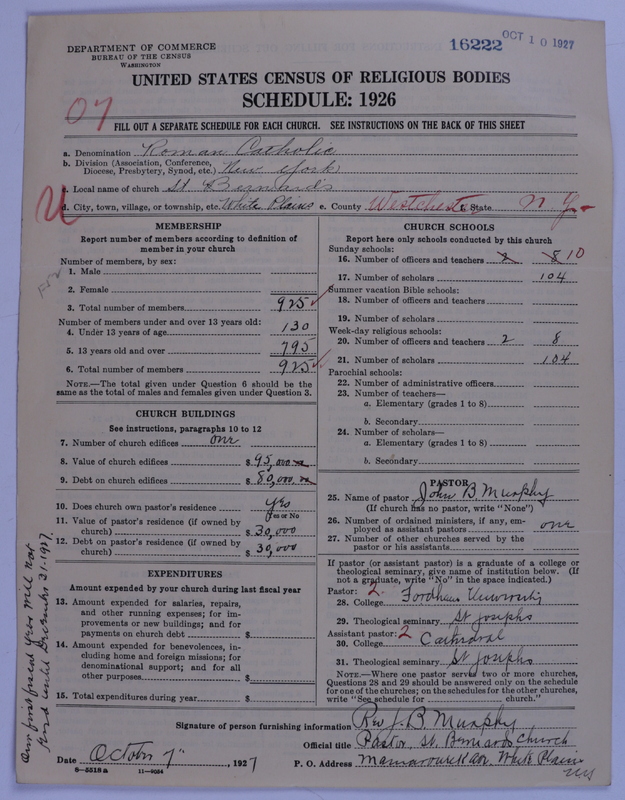 DEPARTMENT OF COMMERCE
BUREAU OF THE CENSUS
WASHINGTON
16222 OCT 10 1927
UNITED STATES CENSUS OF RELIGIOUS BODIES
SCHEDULE: 1926
07
FILL OUT A SEPARATE SCHEDULE FOR EACH CHURCH. SEE INSTRUCTIONS ON THE BACK OF THIS SHEET
a. Denomination Roman Catholic
b. Division (Association, Conference, Diocese, Presbytery, Synod, etc.) New York
c. Local name of church St Bernard's
U
d. City, town, village, or township, etc. White Plains e. County Westchester State N Y
MEMBERSHIP
Report number of members according to definition of member in your church
Number of members, by sex:
1. Male
2. Female
3. Total number of members 925
Number of members under and over 13 years old:
4. Under 13 years of age 130
5. 13 years old and over 795
6. Total number of members 925
NOTE.—The total given under Question 6 should be the
same as the total of males and females given under Question 3.
CHURCH BUILDINGS
See instructions, paragraphs 10 to 12
7. Number of church edifices one
8. Value of church edifices $ 95,000
9. Debt on church edifices $ 80,000
10. Does church own pastor's residence? yes
Yes or No
11. Value of pastor's residence (if owned by
church) $ 30,000
12. Debt on pastor's residence (if owned by
church) $ 30,000
EXPENDITURES
Amount expended by your church during last fiscal year
13. Amount expended for salaries, repairs,
and other running expenses; for im-
provements or new buildings; and for
payments on church debt $
14. Amount expended for benevolences, in-
cluding home and foreign missions; for
denominational support; and for all
other purposes $
15. Total expenditures during year $
Our first fiscal year will not
end until December 31-1927.
CHURCH SCHOOLS
Report here only schools conducted by this church
Sunday schools:
16. Number of officers and teachers 2 8 10
17. Number of scholars 104
Summer vacation Bible schools:
18. Number of officers and teachers
19. Number of scholars
Week-day religious schools:
20. Number of officers and teachers 2 8
21. Number of scholars 104
Parochial schools:
22. Number of administrative officers
23. Number of teachers—
a. Elementary (grades 1 to 8)
b. Secondary
24. Number of scholars—
a. Elementary (grades 1 to 8)
b. Secondary
PASTOR
25. Name of pastor John B Murphy
(If church has no pastor, write "None")
26. Number of ordained ministers, if any, em-
ployed as assistant pastors one
27. Number of other churches served by the
pastor or his assistants
If pastor (or assistant pastor) is a graduate of a college or
theological seminary, give name of institution below. (If
not a graduate, write "No" in the space indicated.)
Pastor: 2
28. College Fordham University
29. Theological seminary St Josephs
Assistant pastor: 2
30. College Cathedral
31. Theological seminary St Josephs
NOTE.—Where one pastor served two or more churches,
Questions 28 and 29 should be answered only on the schedule
for one of the churches; on the schedules for the other churches,
write "See schedule for church."
Signature of person furnishing information Rev J. B Murphy
Official title Pastor, St. Bernards Church
Date October 7", 1927 P. O. Address Mamaroneck Ave, White Plains
NY
8—5518a 11—9054